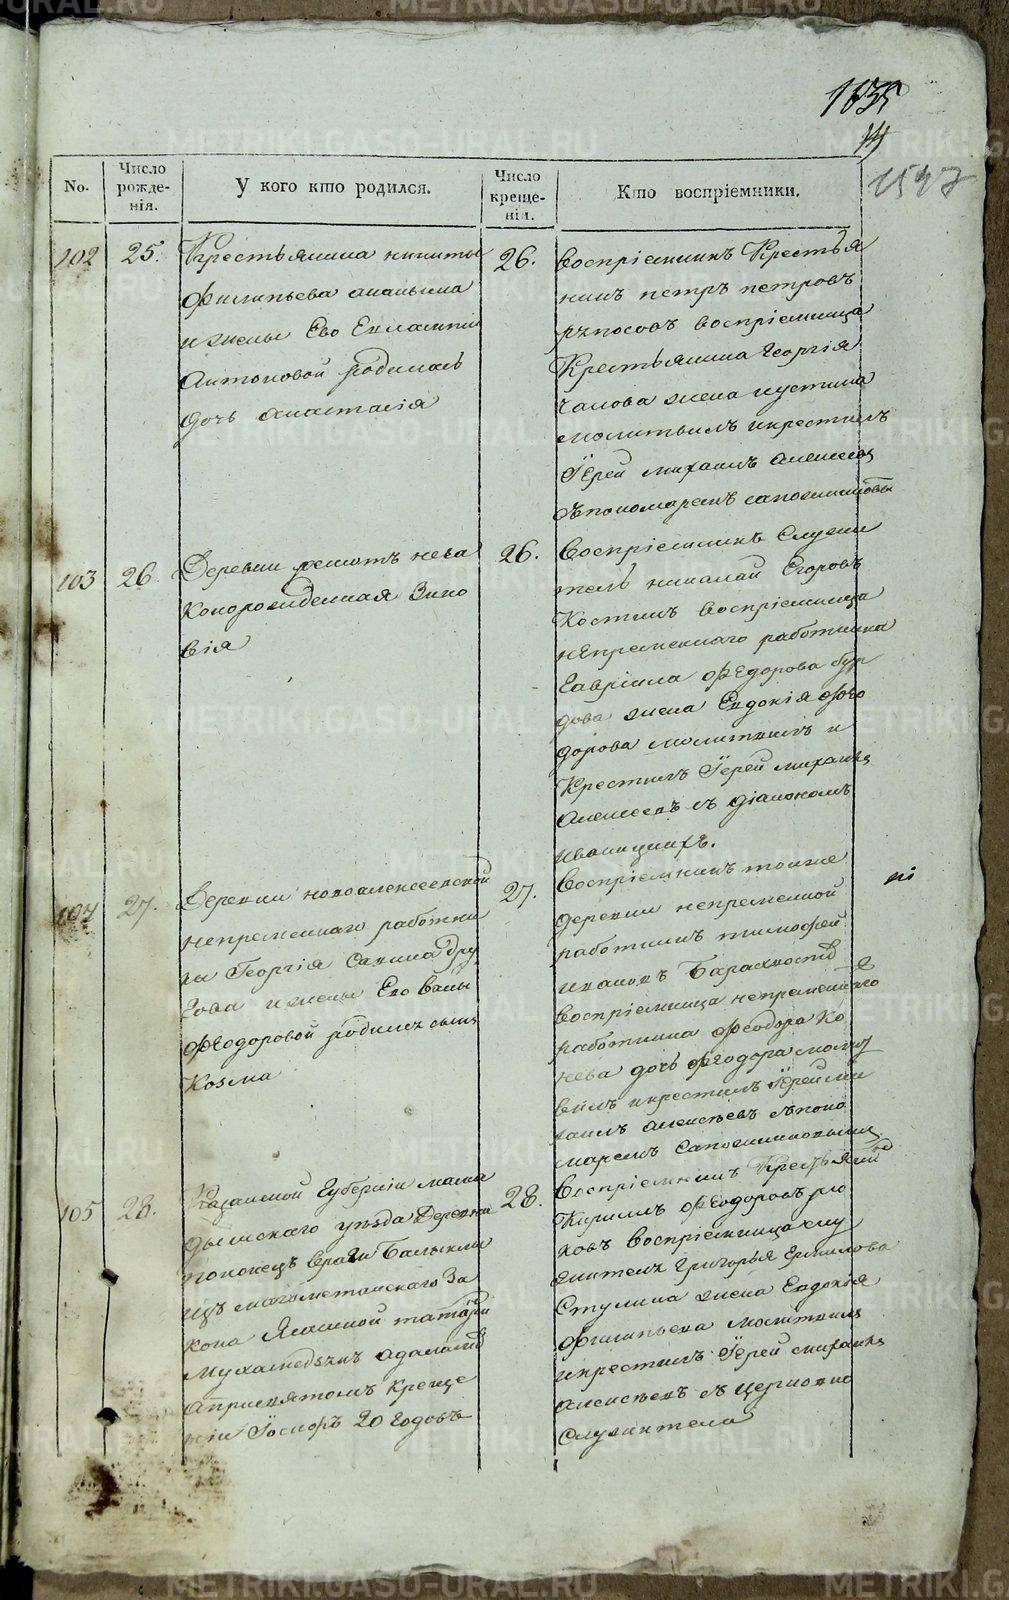 14
1547
No.
Число рожде-нія.
У кого кто родился.
Число креще-нія.
Кто воспріемники.
102
25.
Крестьянина никиты
Филипьева ананьина
и жены Ево Евлампии
Антоновой родилась
дочь анастасія
26.
воспріемникъ Крестья
нинъ петръ петровъ
воспріемница
Крестьянина Георгія
жена иустина
молитвилъ икрестилъ
Іерей михаилъ алексеев
съпономаремъ сапожниковы
103
26.
Деревни решотъ нева
конорожденная Зино
вія
26.
Воспріемникъ Служи
тель николай Егоровъ
Костинъ воспріемница
нЕпременнаго работника
Гавріила фЕдорова бур
дова жена Евдокія фео
дорова молитвилъ и
Крестилъ Іерей михаилъ
Алексеевъ съ діакономъ
иваницкихъ.
104
27.
Деревни новоалексеевской
непременнаго работни
ка Георгія Савина Дру
гова и жены Ево
фЕодоровой родился сынъ
Козма
27.
Воспріемникъ тоиже
деревни непременной
работникъ тимофей
ивановъ
Воспріемница непременнаго
работника феодора Ко
нева дочь феодора молит
вилъ икрестилъ Іерей ми
хаилъ алексеевъ съпоно
маремъ Сапожниковымъ
105
28.
Казанской Губерніи мама
дышскаго уезда Деревни
врагъ
магометанскаго За
кона Ясашной татаринъ
апринятомъ креще
ніи 20 годовъ
28.
Воспріемникъ Крестьянинъ
Кирилъ фЕодоровъ
ковъ Воспріемница слу
жителя Григорья Ермилова
Стулина жена Евдокія
Филипьева молитвилъ
икрестилъ Іерей михаилъ
алексеевъ съ церковно
служители
METRIKI.GASO-URAL.RU